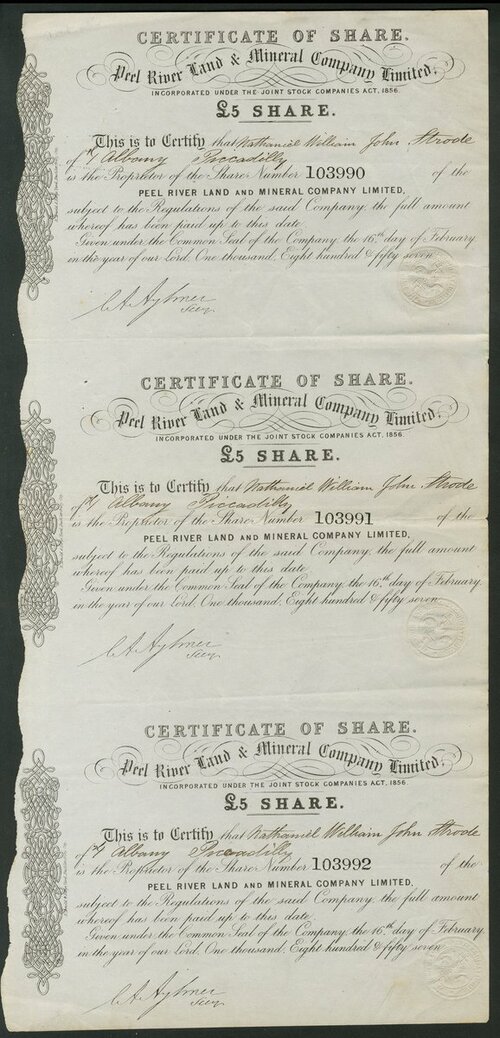 CERTIFICATE OF SHARE.
Peel River Land & Mineral Company Limited,
INCORPORATED UNDER THE JOINT STOCK COMPANIES ACT, 1856
£5 SHARE.
This is to Certify that Nathaniel William John Strode
of Albany Piccadilly
is the Proprietor of the Share Number 103990 of the
PEEL RIVER LAND AND MINERAL COMPANY LIMITED,
subject to the Regulations of the said Company, the full amount
whereof has been paid up to this date.
Given under the Common Seal of the Company, the 16th day of February
in the year of our Lord, One thousand, Eight hundred & fifty seven
C A Aylmer
Secy.
CERTIFICATE OF SHARE.
Peel River Land & Mineral Company Limited,
INCORPORATED UNDER THE JOINT STOCK COMPANIES ACT, 1856
£5 SHARE.
This is to Certify that Nathaniel William John Strode
of Albany Piccadilly
is the Proprietor of the Share Number 103991 of the
PEEL RIVER LAND AND MINERAL COMPANY LIMITED,
subject to the Regulations of the said Company, the full amount
whereof has been paid up to this date.
Given under the Common Seal of the Company, the 16th day of February
in the year of our Lord, One thousand, Eight hundred & fifty seven
C A Aylmer
Secy.
CERTIFICATE OF SHARE.
Peel River Land & Mineral Company Limited,
INCORPORATED UNDER THE JOINT STOCK COMPANIES ACT, 1856
£5 SHARE.
This is to Certify that Nathaniel William John Strode
of Albany Piccadilly
is the Proprietor of the Share Number 103992 of the
PEEL RIVER LAND AND MINERAL COMPANY LIMITED,
subject to the Regulations of the said Company, the full amount
whereof has been paid up to this date.
Given under the Common Seal of the Company, the 16th day of February
in the year of our Lord, One thousand, Eight hundred & fifty seven
C A Aylmer
Secy.